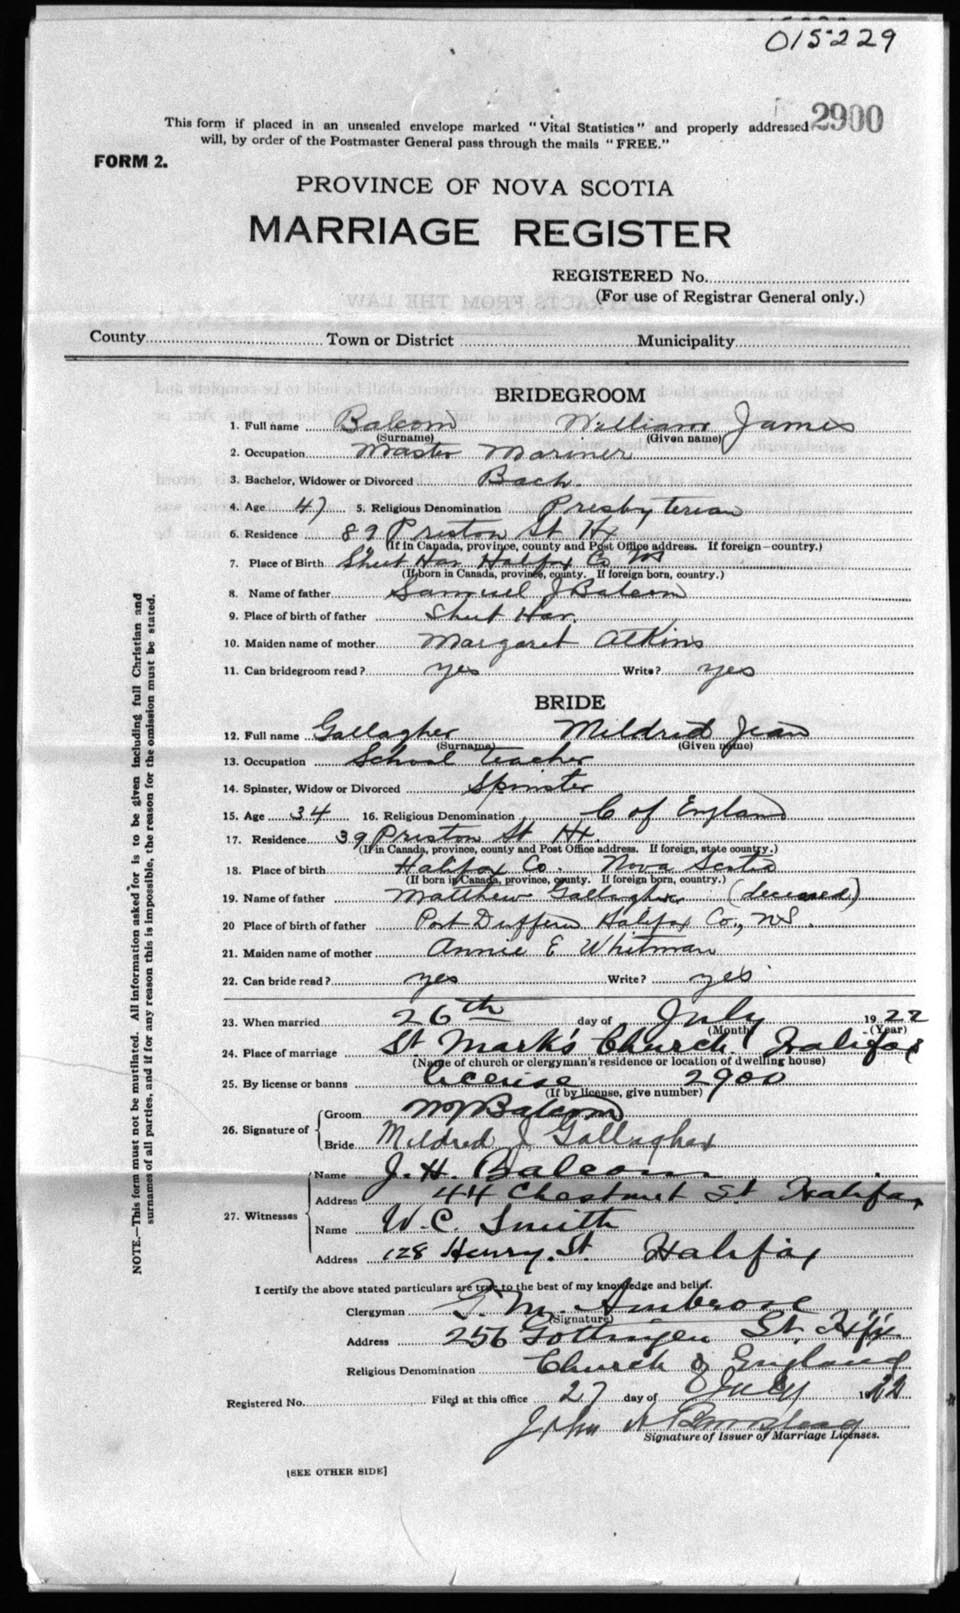 015229
This form if placed in an unsealed envelope marked "Vital Statistics" and properly addressed 2900
will, by order of the Postmaster General pass through the mails "FREE."
FORM 2.
PROVINCE OF NOVA SCOTIA
MARRIAGE REGISTER
REGISTERED No.
(For use of Registrar General only.)
County Town or District Municipality
BRIDEGROOM
1. Full name Balcom William James
(Surname) (Given name)
2. Occupation Master Mariner
3. Bachelor, Widower or Divorced Bach.
4. Age 47 5. Religious Denomination Presbyterian
6. Residence 89 Preston St Hx
(If in Canada, province, county and Post Office address. If foreign—country.)
7. Place of Birth Sheet Har Halifax Co NS
(If born in Canada, province, county. If foreign born, country.)
8. Name of father Samuel J Balcom
9. Place of birth of father Sheet Har.
10. Maiden name of mother Margaret Atkins
11. Can bridegroom read? yes Write? yes
BRIDE
12. Full name Gallagher Mildred Jean
(Surname) (Given name)
13. Occupation School teacher
14. Spinster, Widow or Divorced Spinster
15. Age 34 16. Religious Denomination C of England
17. Residence 39 Preston St Hx.
(If in Canada, province, county and Post Office address. If foreign, state country.)
18. Place of birth Halifax Co. Nova Scotia
(If born in Canada, province, county. If foreign born, country.)
19. Name of father Matthew Gallagher (deceased)
20 Place of birth of father Port Dufferin Halifax Co., NS.
21. Maiden name of mother Annie E Whitman
22. Can bride read? yes Write? yes
23. When married 26th day of July 1922
(Month) (Year)
24. Place of marriage St Mark's Church Halifax
(Name of church or clergyman's residence or location of dwelling house)
25. By license or banns license 2900
(If by license, give number)
26. Signature of Groom WJ Balcom
Bride Mildred J Gallagher
27. Witnesses Name J. H. Balcom
Address 44 Chestnut St Halifax
Name W. C. Smith
Address 128 Henry. St Halifax
I certify the above stated particulars are true to the best of my knowledge and belief.
Clergyman T. M. Ambrose
(Signature)
Address 256 Gottingen St. Hfx
Religious Denomination Church of England
Registered No. Filed at this office 27 day of July 1922
John A
Signature of Issuer of Marriage Licenses.
[SEE OTHER SIDE]
NOTE.—This form must not be mutilated. All information asked for is to be given including full Christian and
surnames of all parties, and if for any reason this is impossible, the reason for the omission must be stated.